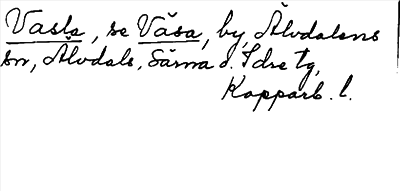 Vasla, se Våsa, by, Älvdalens
sn, Älvdals, Särna o. Idre tg,
Kopparb. l.